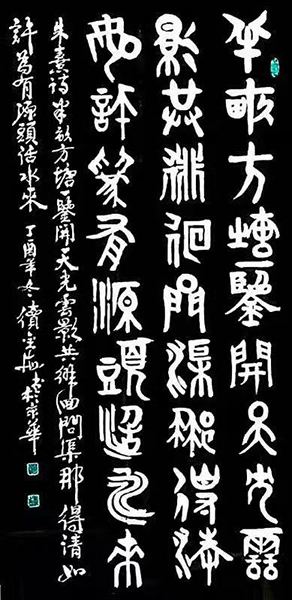 半畝方塘一鑒開天光雲
影共徘徊問渠那得清
如許為有源頭活水來
朱熹詩半畝方塘一鑒開天光雲影共徘徊問渠那得清如
許為有源頭活水來 丁酉年冬 於京華